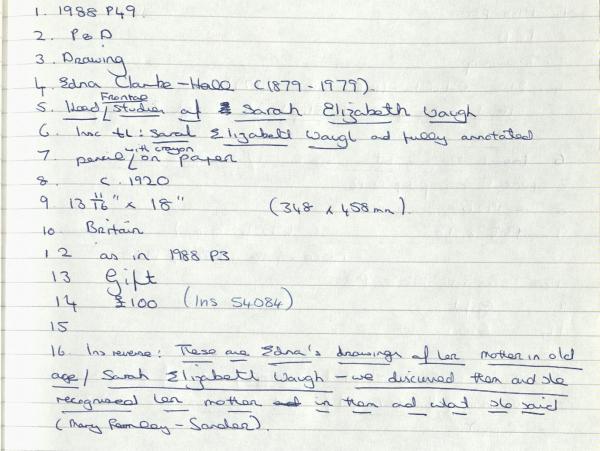 1. 1988 P49
2. P & D
3. Drawing
4. Edna Clarke-Hall (1879-1979)
5. Head / Frontal Studies of Sarah Elizabeth Waugh
6. Insc bl: Sarah Elizabeth Waugh and fully annotated
7. pencil / with crayon on paper
8. c. 1920
9 13 11/16" x 18" (348 x 458mm).
10. Britain
12 as in 1988 P3
13 Gift
14 £100 (Ins 54084)
15
16. Ins reverse: These are Edna's drawings of her mother in old
age / Sarah Elizabeth Waugh - we discussed them and she
recognised her mother in them and what she said
(Mary - Sander).